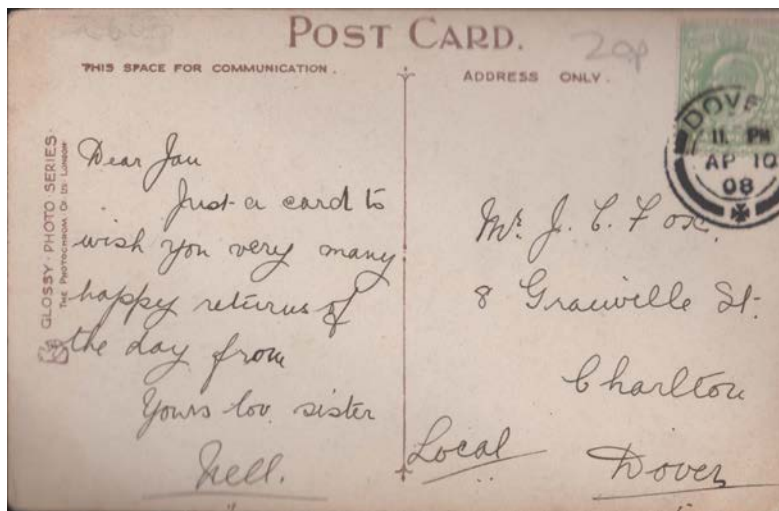 POST CARD.
20p
THIS SPACE FOR COMMUNICATION.
ADDRESS ONLY.
GLOSSY · PHOTO SERIES ·
THE PHOTOCHROM Co Ltd LONDON
Dear Jan
Just a card to
wish you very many
happy returns of
the day from
Yours lov. sister
Nell.
Mr. J. C. Fox.
8 Granville St.
Charlton
Dover
Local
DOVE
11. PM
AP 10
08